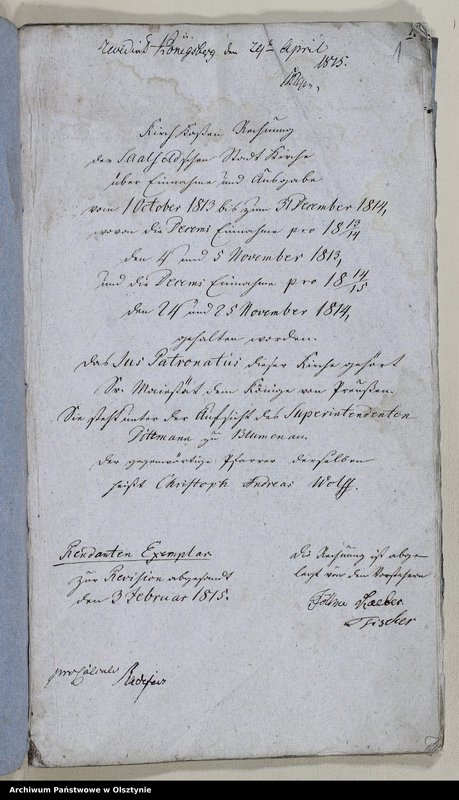 1
Revidirt Königsberg den 24t April
1815.
Kirch Kassen Rechnung
der Saalfeldschen Stadt Kirche
über Einnahme und Ausgabe
vom 1 October 1813 bis zum 31 December 1814,
wovon die Decems Einnahme pro 18 13/14
den 4 und 5 November 1813,
und die Decems Einnahme pro 18 14/15
den 24 und 25 November 1814,
gehalten worden.
Das Jus Patronatus dieser Kirche gehört
Sr. Majestät dem Könige von Preußen.
Sie steht unter der Aufsicht des Superintendenten
Dittmann zu Blumenau.
Der gegenwärtige Pfarrer derselben
heißt Christoph Andreas Wolff.
Rendanten Exemplar
zur Revision abgesandt
den 3 Februar 1815.
Die Rechnung ist abge-
legt von den Vorstehern
Fischer
pro Calculo
Archiwum Państwowe w Olsztynie